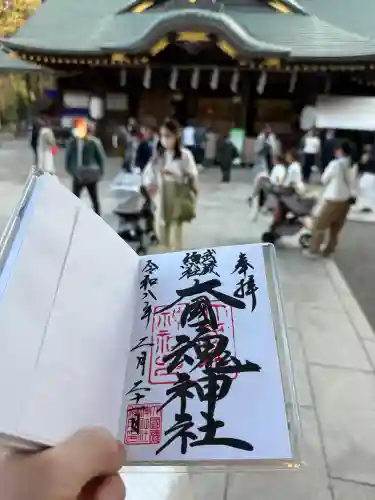 奉拝
武蔵
総社
大國魂神社
令和八年二月二十日